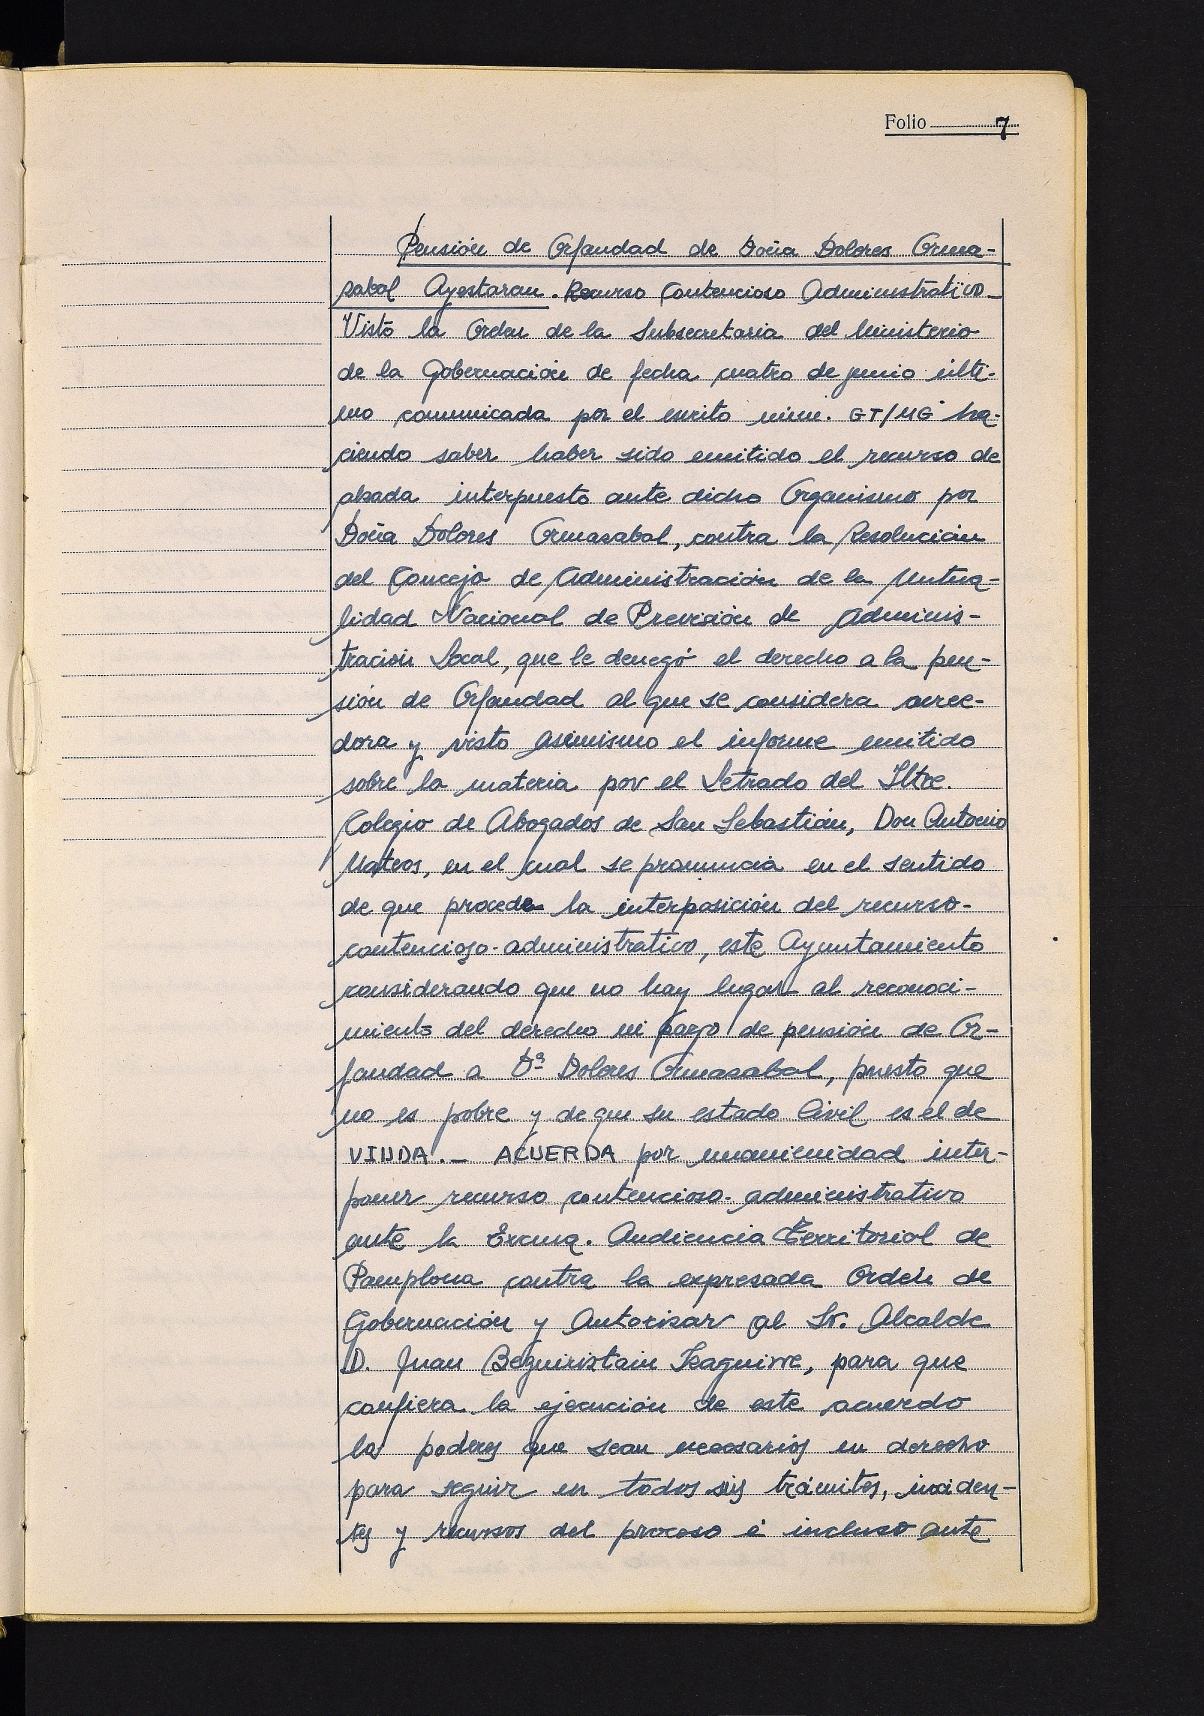 Folio 7
Pensión de Orfandad de Doña Dolores Orma-
zabal Ayestaran. Recurso Contencioso Administrativo.
Visto la Orden de la Subsecretaria del Ministerio
de la Gobernación de fecha cuatro de junio últi-
mo comunicada por el escrito núm. GT/MG ha-
ciendo saber haber sido emitido el recurso de
alzada interpuesto ante dicho Organismo por
Doña Dolores Ormazabal, contra la Resolución
del Concejo de Administración de la Mutua-
lidad Nacional de Previsión de Adminis-
tración Local, que le denegó el derecho a la pen-
sión de Orfandad al que se considera acree-
dora y visto asimismo el informe emitido
sobre la materia por el Letrado del Iltre.
Colegio de Abogados de San Sebastián, Don Antonio
Mateos, en el cual se pronuncia en el sentido
de que procede la interposición del recurso-
contencioso-administrativo, este Ayuntamiento
considerando que no hay lugar al reconoci-
miento del derecho ni pago de pensión de Or-
fandad a Dª Dolores Ormazabal, puesto que
no es pobre y de que su estado Civil es el de
VIUDA.- ACUERDA por unanimidad inter-
poner recurso contencioso-administrativo
ante la Excma. Audiencia Territorial de
Pamplona contra la expresada Orden de
Gobernación y Autorizar al Sr. Alcalde
D. Juan Beguiristain Izaguirre, para que
confiera la ejecución de este acuerdo
los poderes que sean necesarios en derecho
para seguir en todos sus trámites, inciden-
tes y recursos del proceso é incluso ante